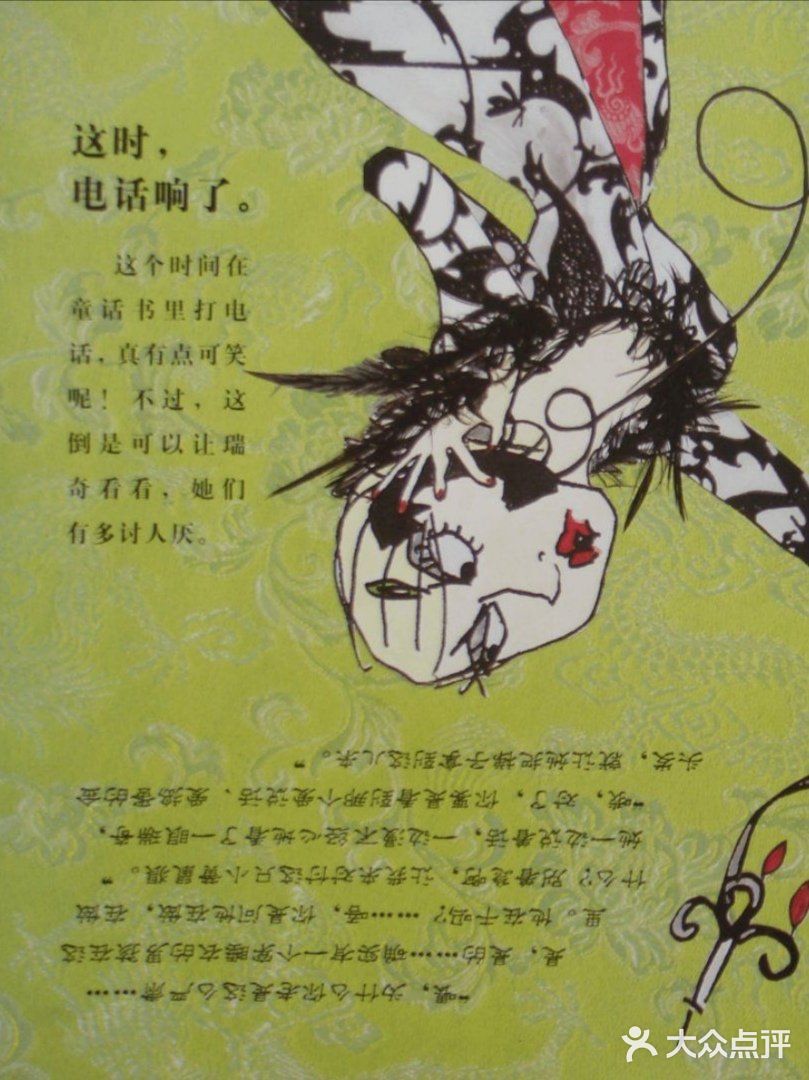 这时，
电话响了。
这个时间在
童话书里打电
话，真有点可笑
呢！不过，这
倒是可以让瑞
奇看看，她们
有多讨人厌。
“喂，为什么你老是这么严肃……
是，是的……确实有一个穿睡衣的男孩在这
里。他在干吗？……，你是问他在做，在做
什么？别着急啊，让我来对付这只小黄鼠狼。”
她一边说着话，一边漫不经心地看了一眼瑞奇，
“哦，对了，你要是看到那个爱说话、爱的金
头发，就让她把梯子拿到这儿来。”
大众点评